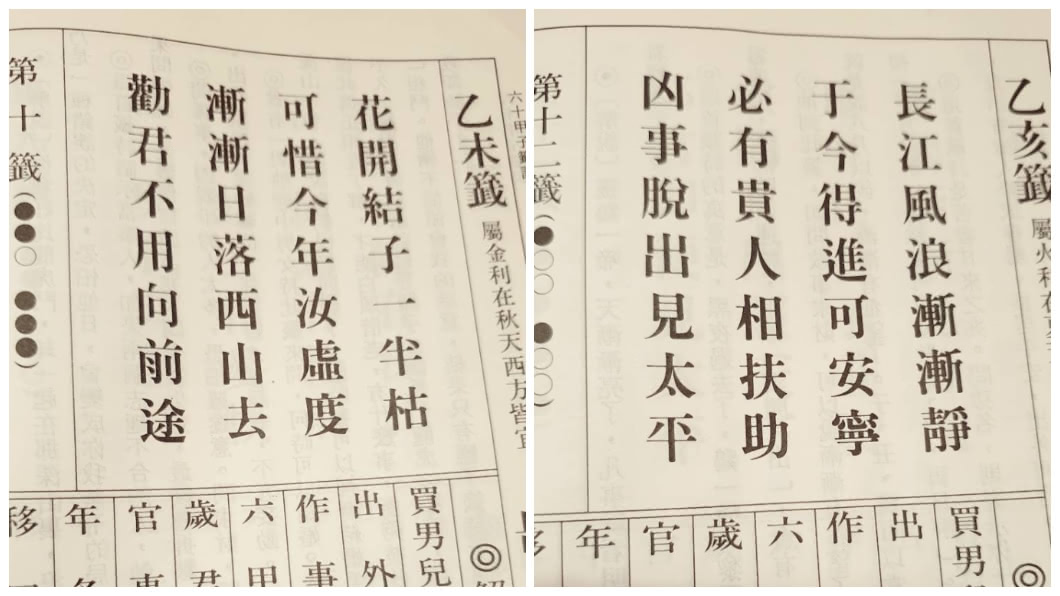 六十甲子籤
乙未籤 屬金利在秋天西方皆宜
花開結子一半枯
可惜今年汝虛度
漸漸日落西山去
勸君不用向前途
第十籤(●●○ ●●●)
買男兒
出外
作事
六甲
歲君
官事
年冬
移
乙亥籤 屬火利在
長江風浪漸漸靜
于今得進可安寧
必有貴人相扶助
凶事脫出見太平
第十二籤(●○○ ●○○)
買男兒
出
作
六
歲
官
年